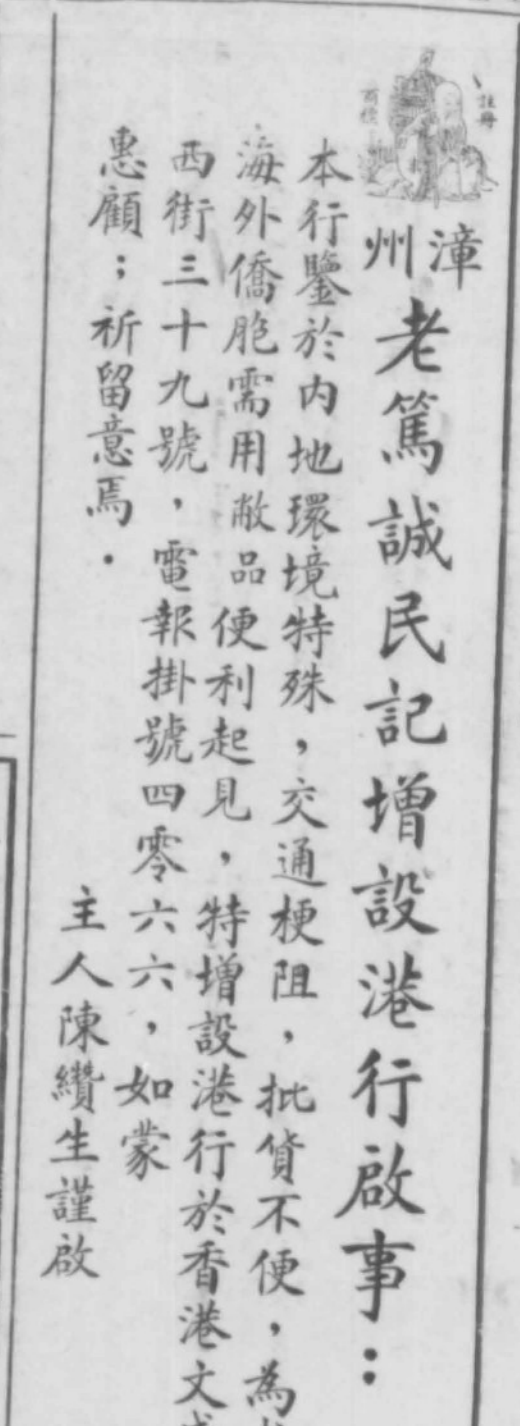 註冊
商標
漳州
老篤誠民記增設港行啟事：
本行鑒於內地環境特殊，交通梗阻，批貨不便，為
海外僑胞需用敝品便利起見，特增設港行於香港文
西街三十九號，電報掛號四零六六，如蒙
惠顧；祈留意焉．
主人陳纘生謹啟